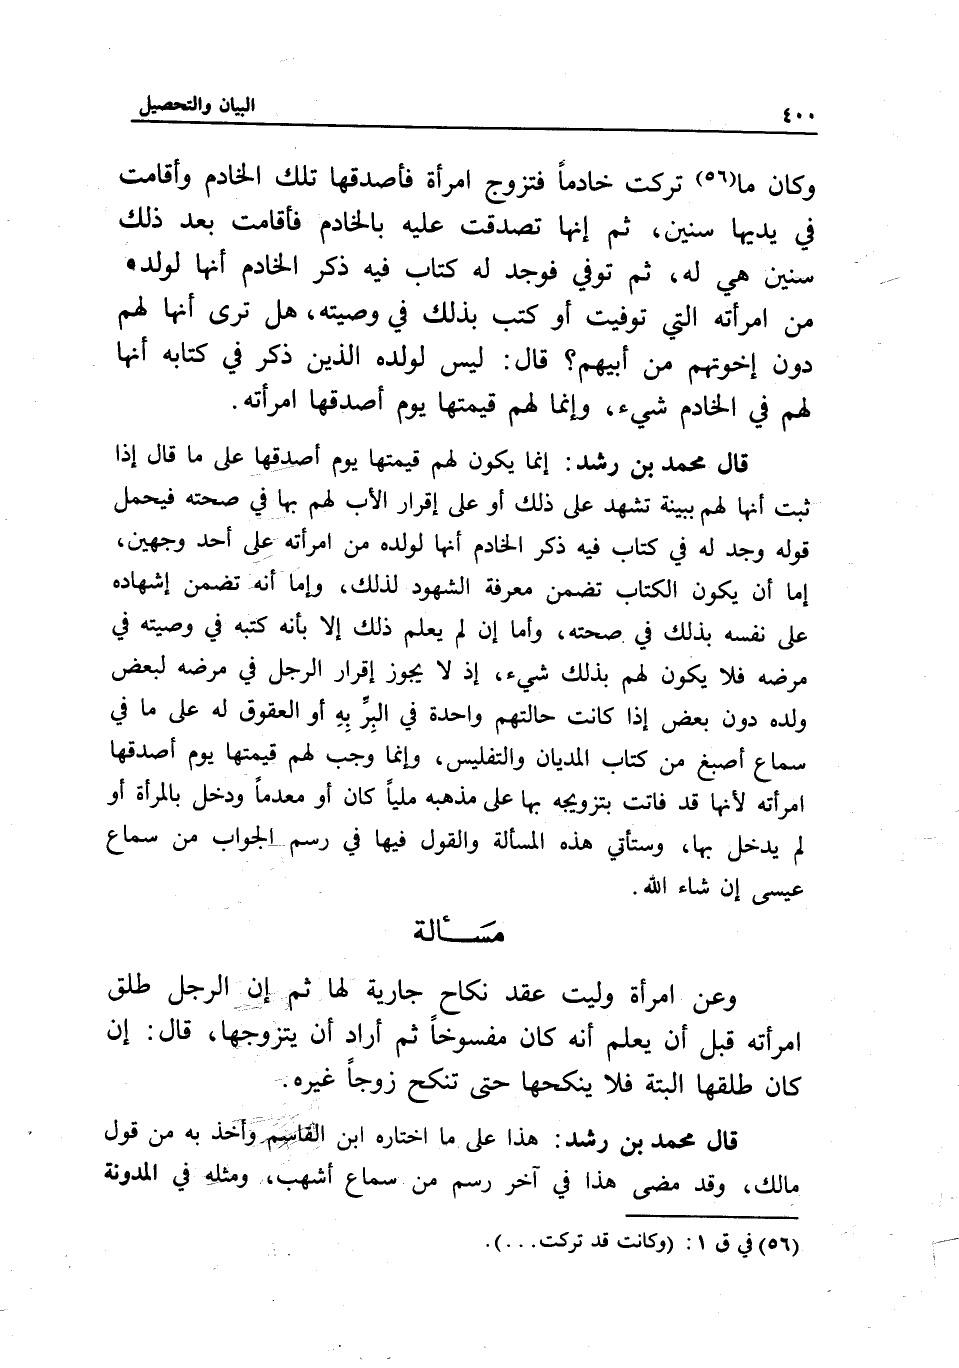 ٤٠٠ البيان والتحصيل
وكان ما(٥٦) تركت خادماً فتزوج امرأة فأصدقها تلك الخادم وأقامت
في يديها سنين، ثم إنها تصدقت عليه بالخادم فأقامت بعد ذلك
سنين هي له، ثم توفي فوجد له كتاب فيه ذكر الخادم أنها لولده
من امرأته التي توفيت أو كتب بذلك في وصيته، هل ترى أنها لهم
دون إخوتهم من أبيهم؟ قال: ليس لولده الذين ذكر في كتابه أنها
لهم في الخادم شيء، وإنما لهم قيمتها يوم أصدقها امرأته.
قال محمد بن رشد: إنما يكون لهم قيمتها يوم أصدقها على ما قال إذا
ثبت أنها لهم ببينة تشهد على ذلك أو على إقرار الأب لهم بها في صحته فيحمل
قوله وجد له في كتاب فيه ذكر الخادم أنها لولده من امرأته على أحد وجهين،
إما أن يكون الكتاب تضمن معرفة الشهود لذلك، وإما أنه تضمن إشهاده
على نفسه بذلك في صحته، وأما إن لم يعلم ذلك إلا بأنه كتبه في وصيته في
مرضه فلا يكون لهم بذلك شيء، إذ لا يجوز إقرار الرجل في مرضه لبعض
ولده دون بعض إذا كانت حالتهم واحدة في البِرِّ بِهِ أو العقوق له على ما في
سماع أصبغ من كتاب المديان والتفليس، وإنما وجب لهم قيمتها يوم أصدقها
امرأته لأنها قد فاتت بتزويجه بها على مذهبه ملياً كان أو معدماً ودخل بالمرأة أو
لم يدخل بها، وستأتي هذه المسألة والقول فيها في رسم الجواب من سماع
عيسى إن شاء الله.
مَسـألة
وعن امرأة وليت عقد نكاح جارية لها ثم إن الرجل طلق
امرأته قبل أن يعلم أنه كان مفسوخاً ثم أراد أن يتزوجها، قال: إن
كان طلقها البتة فلا ينكحها حتى تنكح زوجاً غيره.
قال محمد بن رشد: هذا على ما اختاره ابن القاسم وأخذ به من قول
مالك، وقد مضى هذا في آخر رسم من سماع أشهب، ومثله في المدونة
(٥٦) في ق ١: (وكانت قد تركت...).